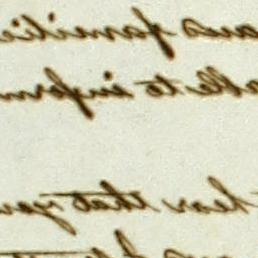 ous familie
able to inform
hear that you